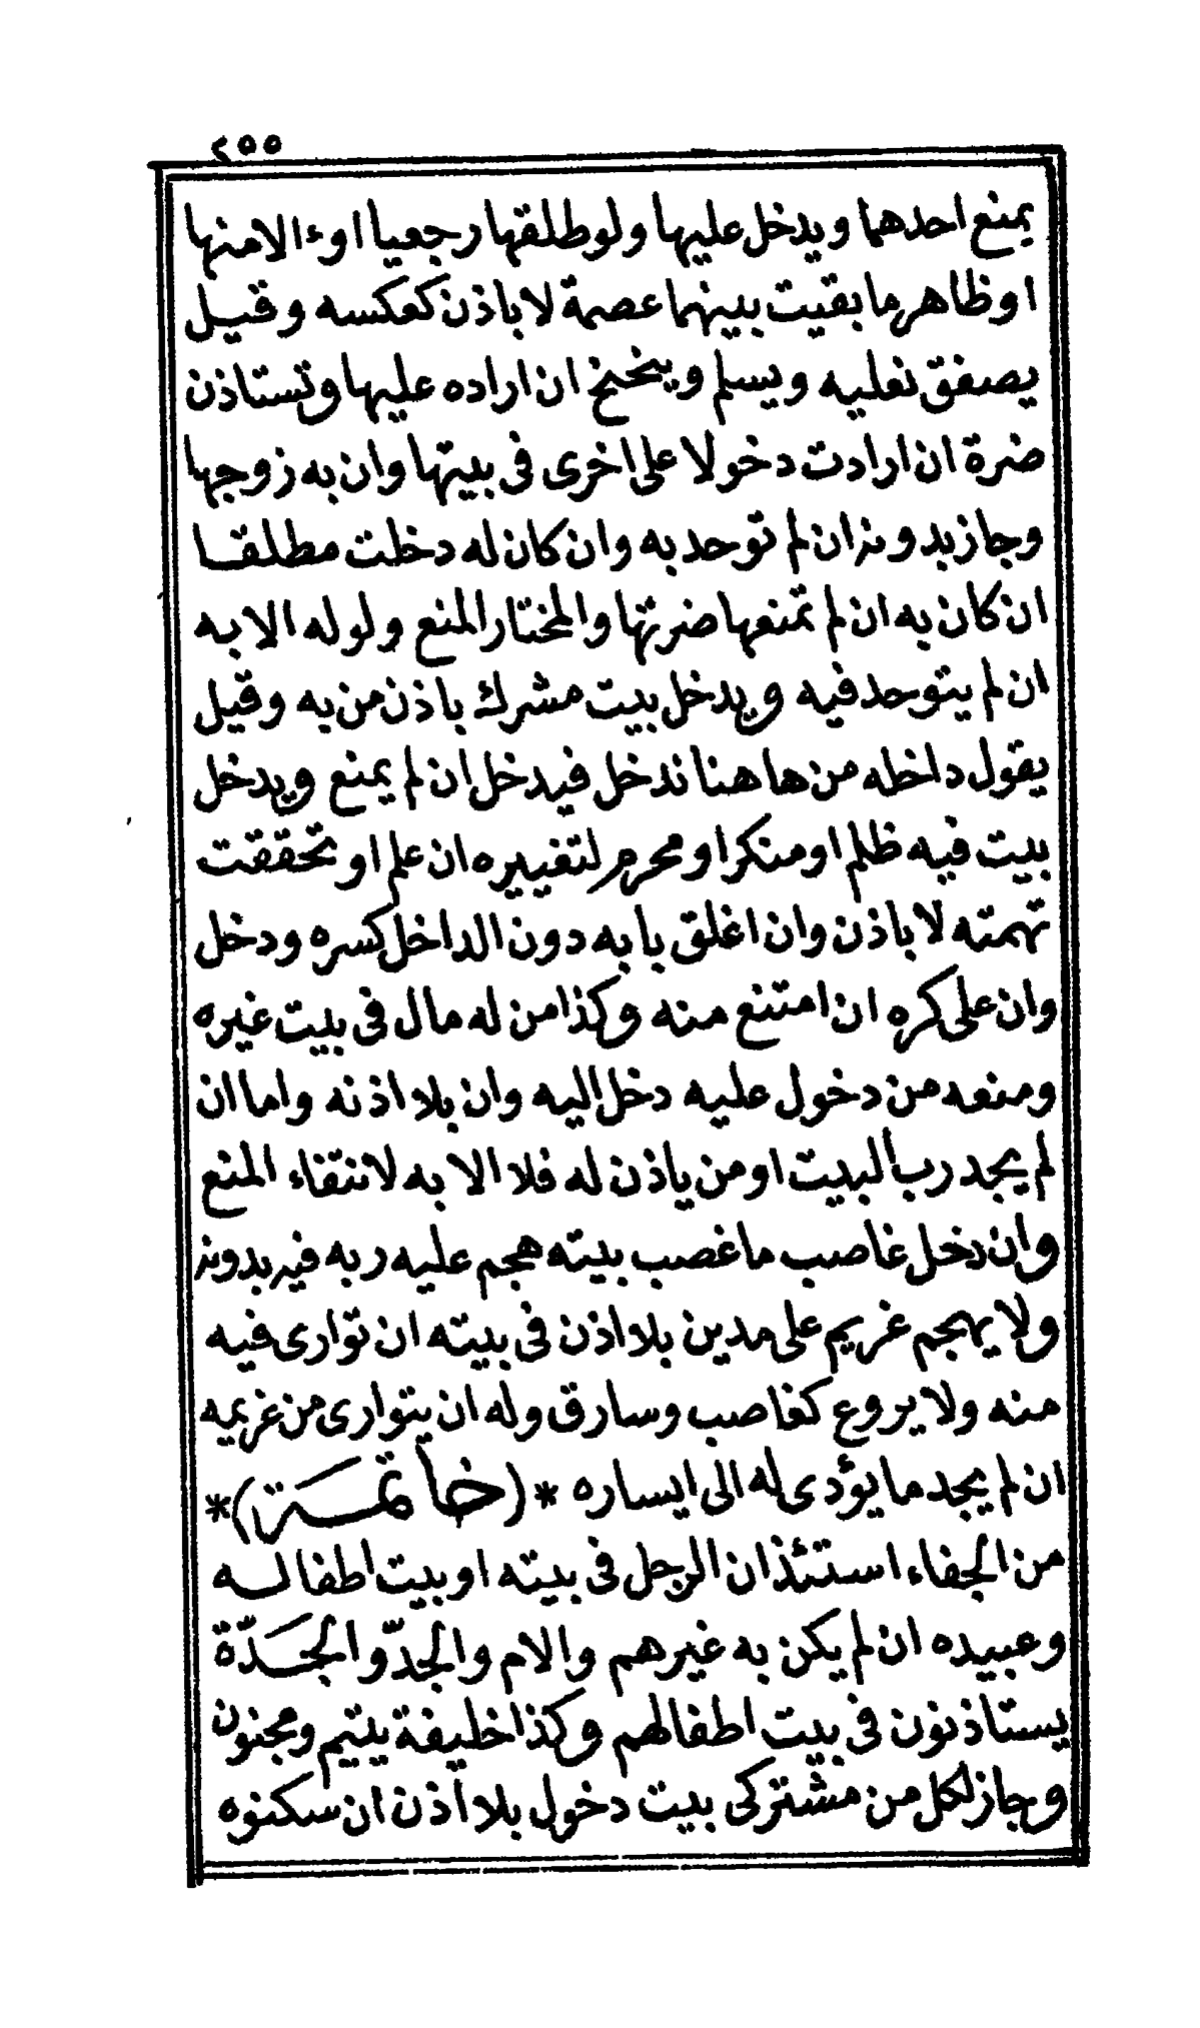 ٢٥٥
يمنع احدهما ويدخل عليها ولو طلقها رجعيا اوء الا منها
او ظاهر ما بقيت بينهما عصمة لا باذن كعكسه وقيل
يصفق نعليه ويسلم ويتنحنح ان اراده عليها وتستاذن
ضرة ان ارادت دخولا على اخرى فى بيتها وان به زوجها
وجاز بدونه ان لم توحد به وان كان له دخلت مطلقا
ان كان به ان لم تمنعها ضرتها والمختار المنع ولو له الا به
ان لم يتوحد فيه ويدخل بيت مشرك باذن من به وقيل
يقول داخله من ها هنا ندخل فيدخل ان لم يمنع ويدخل
بيت فيه ظلم او منكر او محرم لتغييره ان علم او تحققت
تهمته لا باذن وان اغلق بابه دون الداخل كسره ودخل
وان على كره ان امتنع منه وكذا من له مال فى بيت غيره
ومنعه من دخول عليه دخل اليه وان بلا اذنه واما ان
لم يجد رب البيت او من ياذن له فلا الا به لانتفاء المنع
وان دخل غاصب ما غصب بيته هجم عليه ربه فيه بدونه
ولا يهجم غريم على مدين بلا اذن فى بيته ان توارى فيه
منه ولا يروع كغاصب وسارق وله ان يتوارى من غريمه
ان لم يجد ما يؤدى له الى ايساره * (خاتمــة) *
من الجفاء استئذان الرجل فى بيته او بيت اطفاله
وعبيده ان لم يكن به غيرهم والام والجدّ والجَــدّة
يستاذنون فى بيت اطفالهم وكذا خليفة يتيم ومجنون
وجاز لكل من مشتركى بيت دخول بلا اذن ان سكنوه